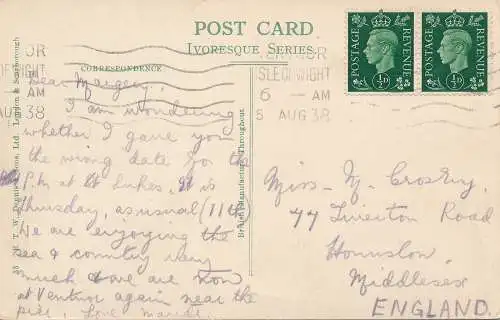 POST CARD
IVORESQUE SERIES
CORRESPONDENCE
POSTAGE REVENUE
½D
POSTAGE REVENUE
½D
OR
AM
AUG 38
ISLE OF WIGHT
6 - AM
5 AUG 38
Dear Margery,
I am wondering
whether I gave you
the wrong date for the
P.M at St Lukes, It is
Thursday, as usual (11th
We are enjoying the
sea & country very
much & are now
at Ventnor again near the
pier, Love
British Manufacture Throughout
Ltd. London & Scarborough
Miss M. Crosby.
77 Tiverton Road
Hounslow.
Middlesex
ENGLAND.